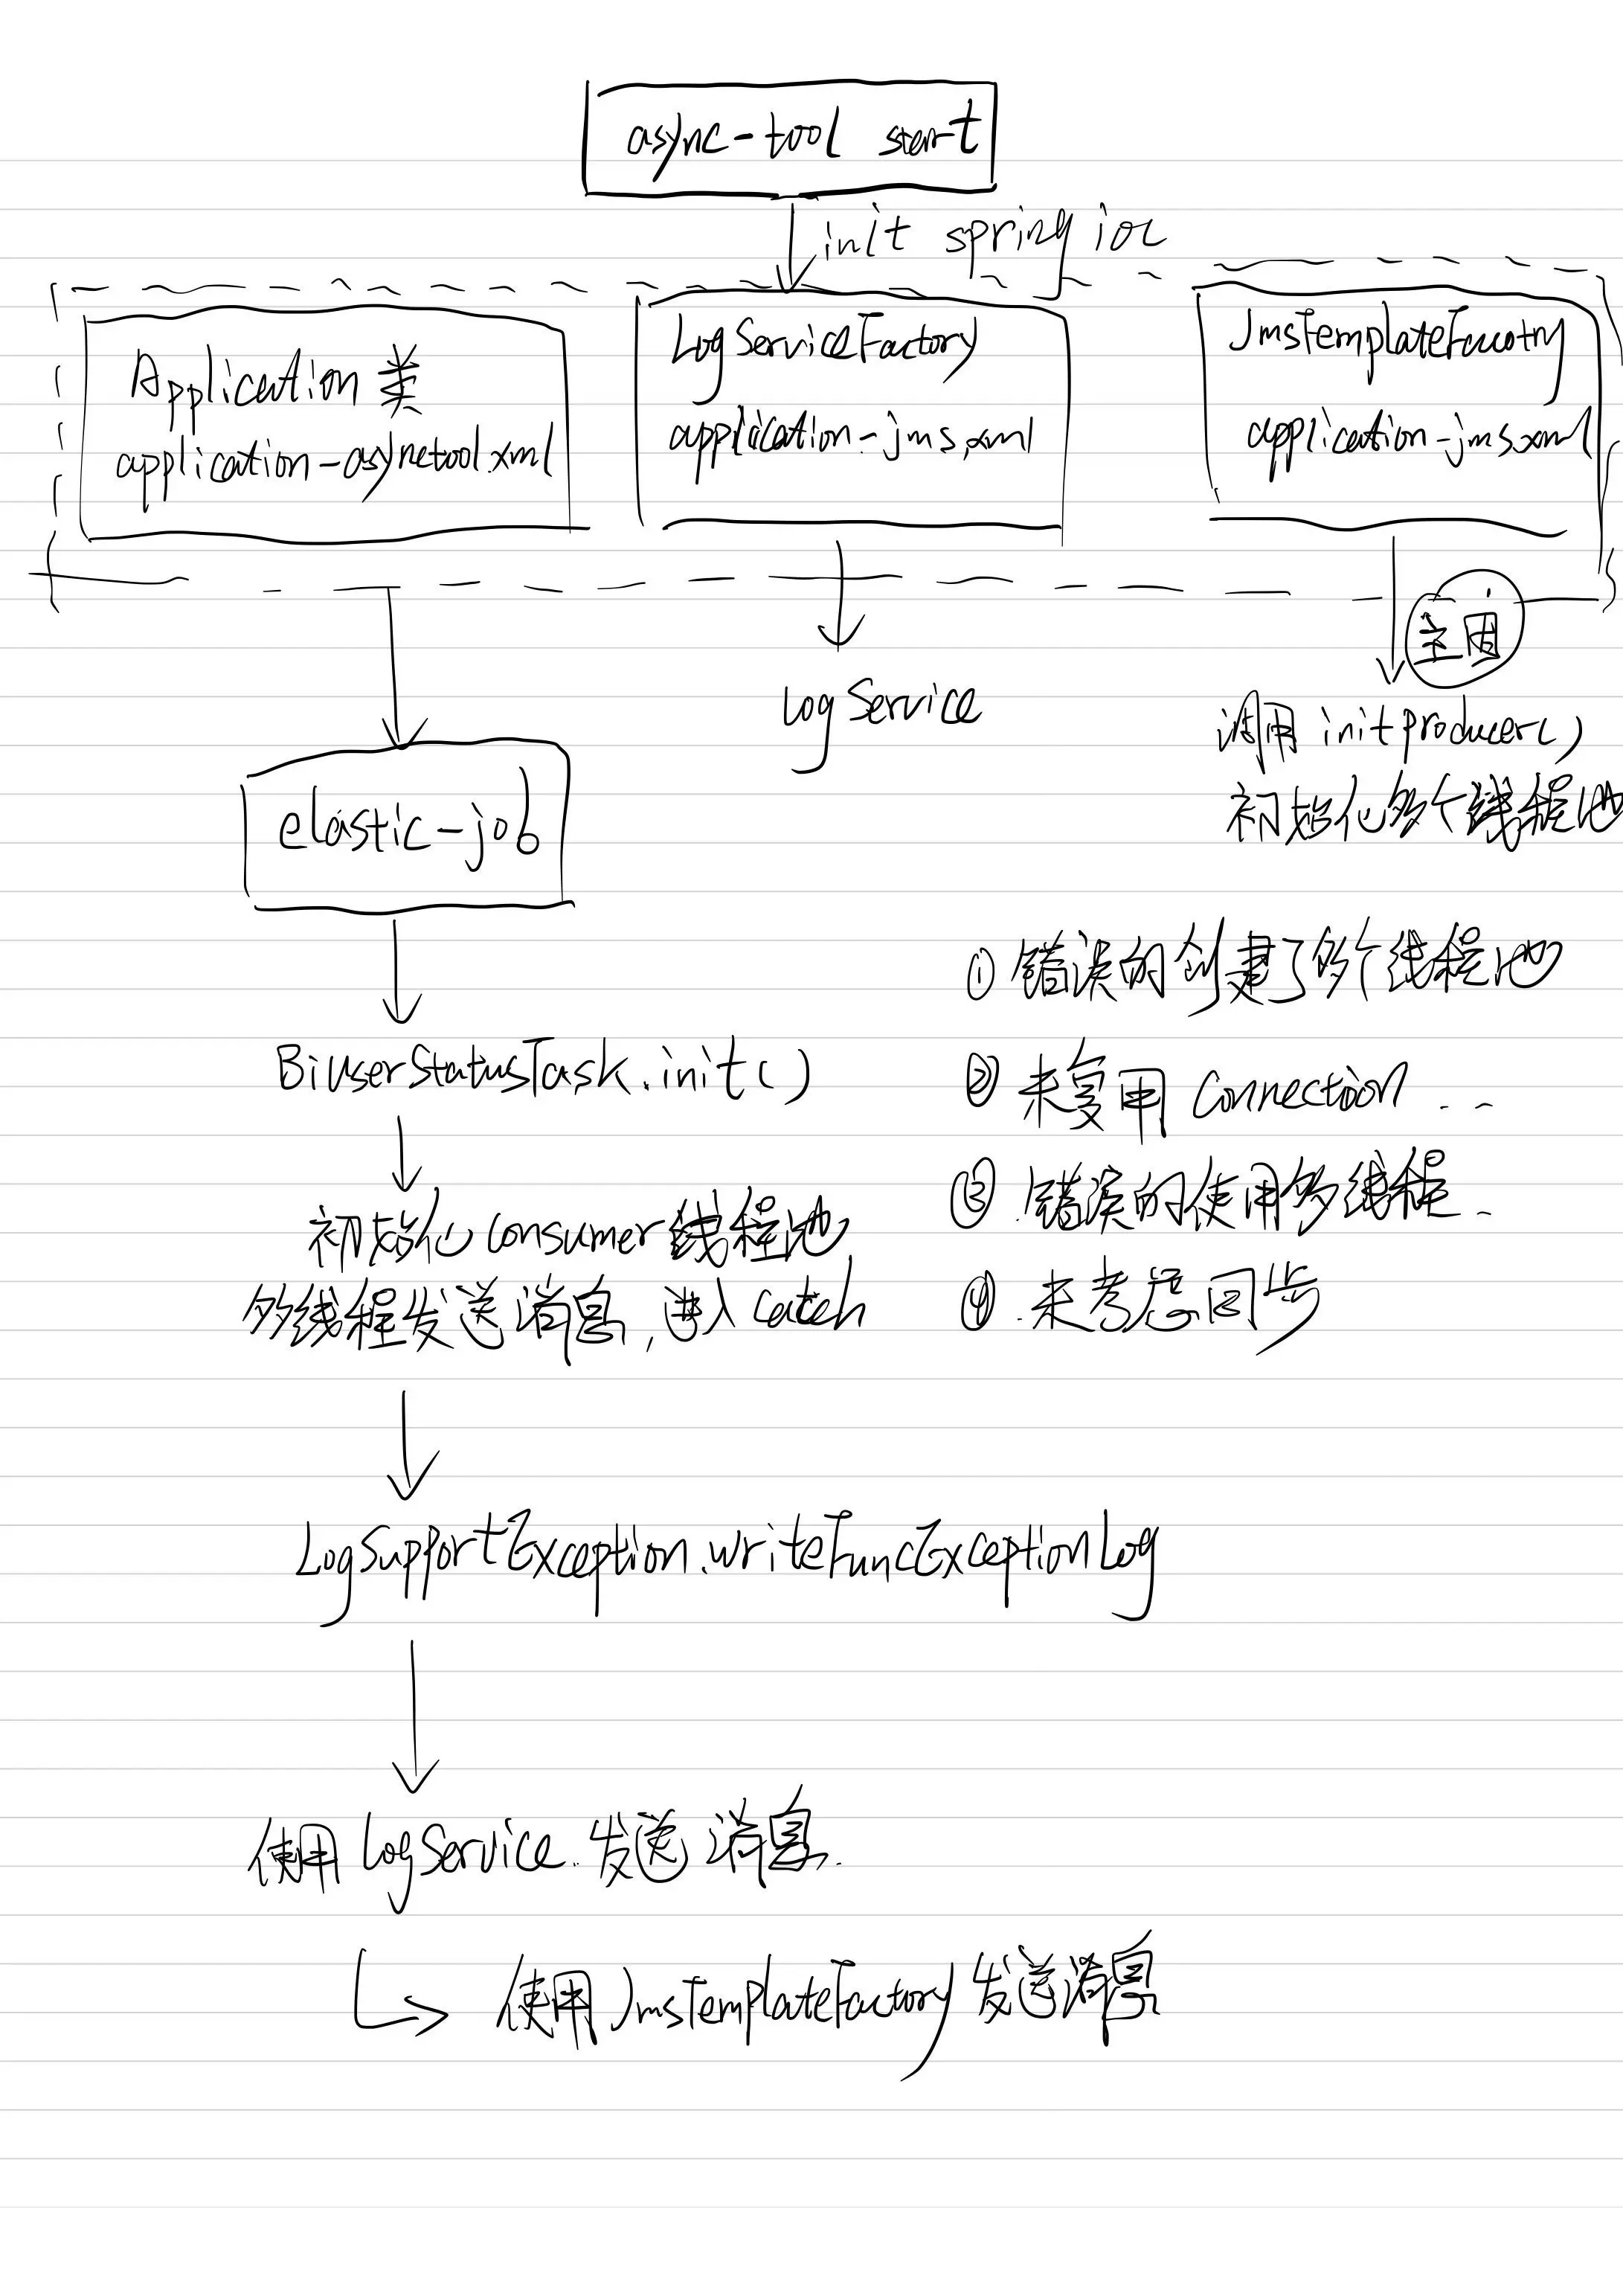 async-tool start
init spring ioc
Application 类
application-asynctool.xml
LogServiceFactory
application-jms.xml
JmsTemplateFacotry
application-jms.xml
主因
LogService
调用 initProducer()
初始化多个线程池
elastic-job
① 错误的创建了多个线程池
BiUserStatusTask.init()
② 未复用 Connection ..
初始化 consumer 线程池
③ .错误的使用多线程.
多线程发送消息, 进入 catch
④ .未考虑同步
LogSupportException.writeFuncExceptionLog
使用 LogService.发送消息.
使用 JmsTemplateFactory 发送消息